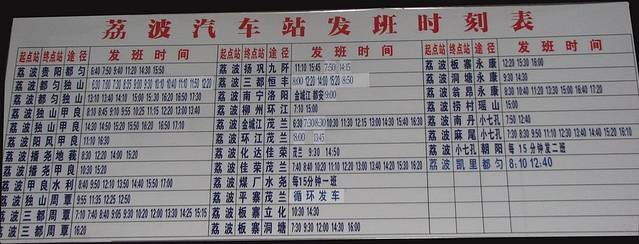 荔波汽车站发班时刻表
起点站 终点站 途径 发班时间
荔波 贵阳 都匀 6:40 7:50 9:40 11:20 14:30 15:50
荔波 都匀 独山
荔波 都匀 独山 13:10 13:40 14:10 15:00 15:30 16:20 16:50 17:30
荔波 独山 甲良 8:10 8:45 9:10 9:55 10:25 11:15 12:20 13:00 13:40
荔波 独山 甲良 14:30 14:50 15:20 15:50 16:20 16:50 17:10
荔波 阳风 甲良 11:10 16:30
荔波 播尧 地莪 8:30 12:20 14:00 15:20
荔波 播尧 甲良 10:30 15:20
荔波 甲良 水利 8:40 9:50 12:10 13:50 14:40 15:50 17:00
荔波 独山 周覃 9:55 11:35 12:25 12:50
荔波 三都 周覃 7:10 7:40 8:40 9:05 9:30 10:20 12:00 13:30 14:25 15:15
荔波 三都 周覃 16:20
起点站 终点站 途径 发班时间
荔波 扬巩 九阡 11:10 15:45 7:50 14:15
荔波 三都 恒丰 8:00 12:20 14:00 15:20 8:50
荔波 南宁 洛阳 金城江 都安 9:00
荔波 柳州 环江 7:10 15:00
荔波 金城江 茂兰 6:30 7:30 8:30 10:30 11:30 12:15 13:00 14:30 15:30 16:40
荔波 环江 茂兰 8:00 13:45
荔波 化达 佳荣 茂兰 9:30 14:50
荔波 佳荣 茂兰 7:40 8:40 10:20 11:10 12:00 13:00 13:40 14:20 15:30 16:20
荔波 煤厂 水尧 每15分钟一班
荔波 平寨 茂兰 循环发车
荔波 板寨 立化 10:30 14:30
荔波 板寨 洞塘 7:30 9:30 12:00 14:30 16:00
起点站 终点站 途径 发班时间
荔波 板寨 永康 12:20 15:30 16:00
荔波 洞塘 永康 9:30 14:30
荔波 翁昂 永康 8:40 10:20 11:20 13:30 15:00 16:40 17:20
荔波 捞村 瑶山 15:00
荔波 南丹 小七孔 7:50 12:40
荔波 麻尾 小七孔 7:30 8:30 9:50 11:10 12:30 13:40 14:40 15:20 16:10
荔波 小七孔 朝阳 每15分钟发二班
荔波 凯里 都匀 8:10 12:40